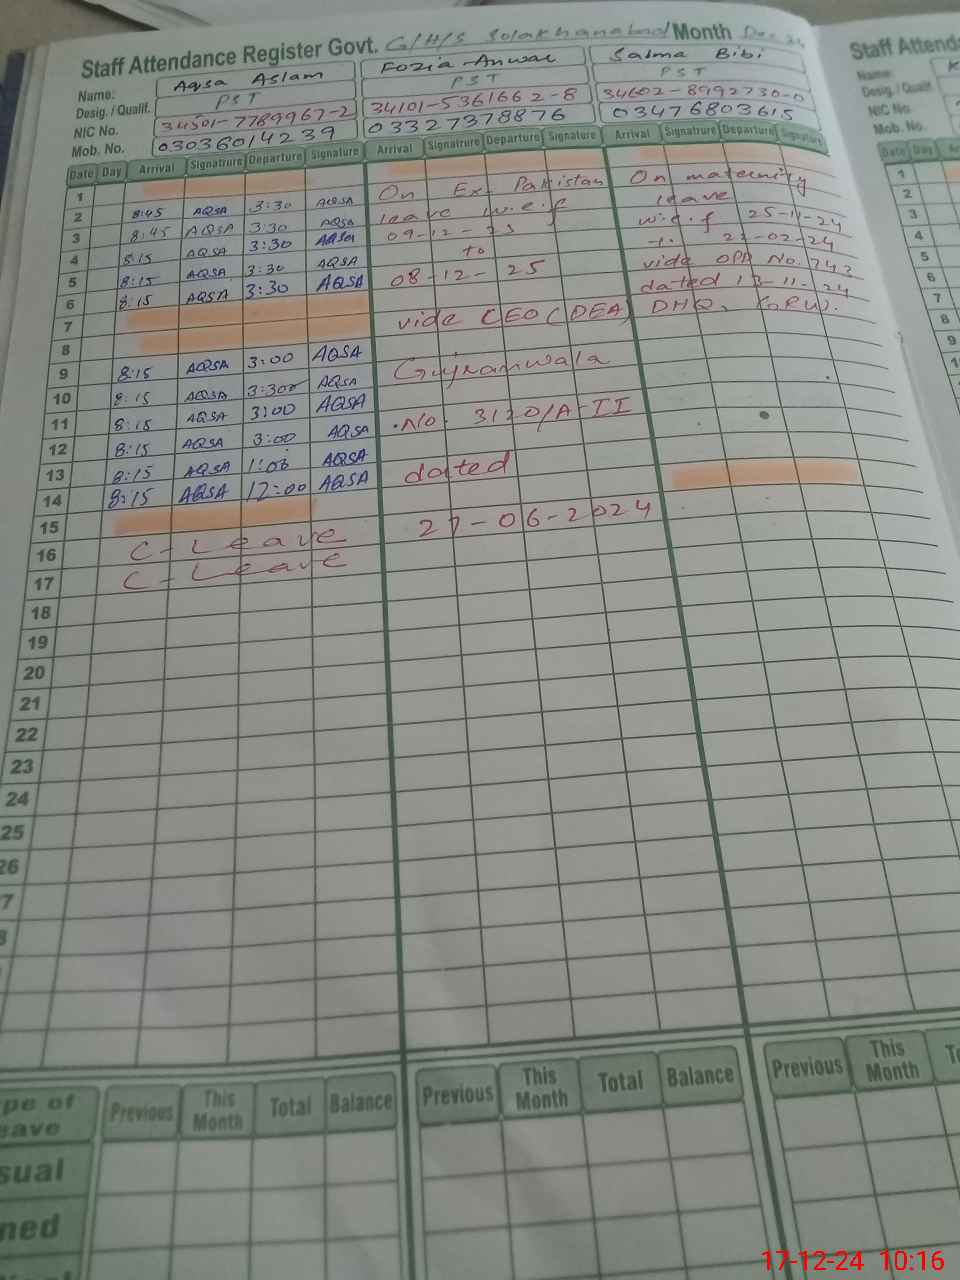 Staff Attendance Register Govt. G/H/S Solakhanabad Month Dec 24
Name: Aqsa Aslam Fozia Anwar Salma Bibi
Desig. / Qualif. PST PST PST
NIC No. 34501-7789967-2 34101-5361662-8 34602-8992730-0
Mob. No. 03036014239 03327378876 03476803615
Date Day Arrival Signatrure Departure Signature Arrival Signatrure Departure Signature Arrival Signatrure Departure Signature
1 On Ex. Pakistan On maternity
2 8:45 AQSA 3:30 AQSA leave w.e.f leave
3 8:45 AQSA 3:30 AQSA 09-12-23 w.e.f 25-11-24
4 8:15 AQSA 3:30 AQSA to 22-02-24
5 8:15 AQSA 3:30 AQSA 08-12-25 vide OPD No. 743
6 8:15 AQSA 3:30 AQSA dated 13-11-24
7 vide CEO (DEA) DHQ,
8
9 8:15 AQSA 3:00 AQSA Gujranwala
10 8:15 AQSA 3:300 AQSA
11 8:15 AQSA 3:00 AQSA No. 3120/A-II
12 8:15 AQSA 3:00 AQSA
13 8:15 AQSA 1:00 AQSA dated
14 8:15 AQSA 12:00 AQSA
15 27-06-2024
16 C-Leave
17 C-Leave
18
19
20
21
22
23
24
25
26
7
pe of
eave Previous This Month Total Balance Previous This Month Total Balance Previous This Month
sual
ned
Staff Attend
Name:
Desig. / Qualif.
NIC No.
Mob. No.
Date Day
1
2
3
4
5
6
7
8
9
17-12-24 10:16